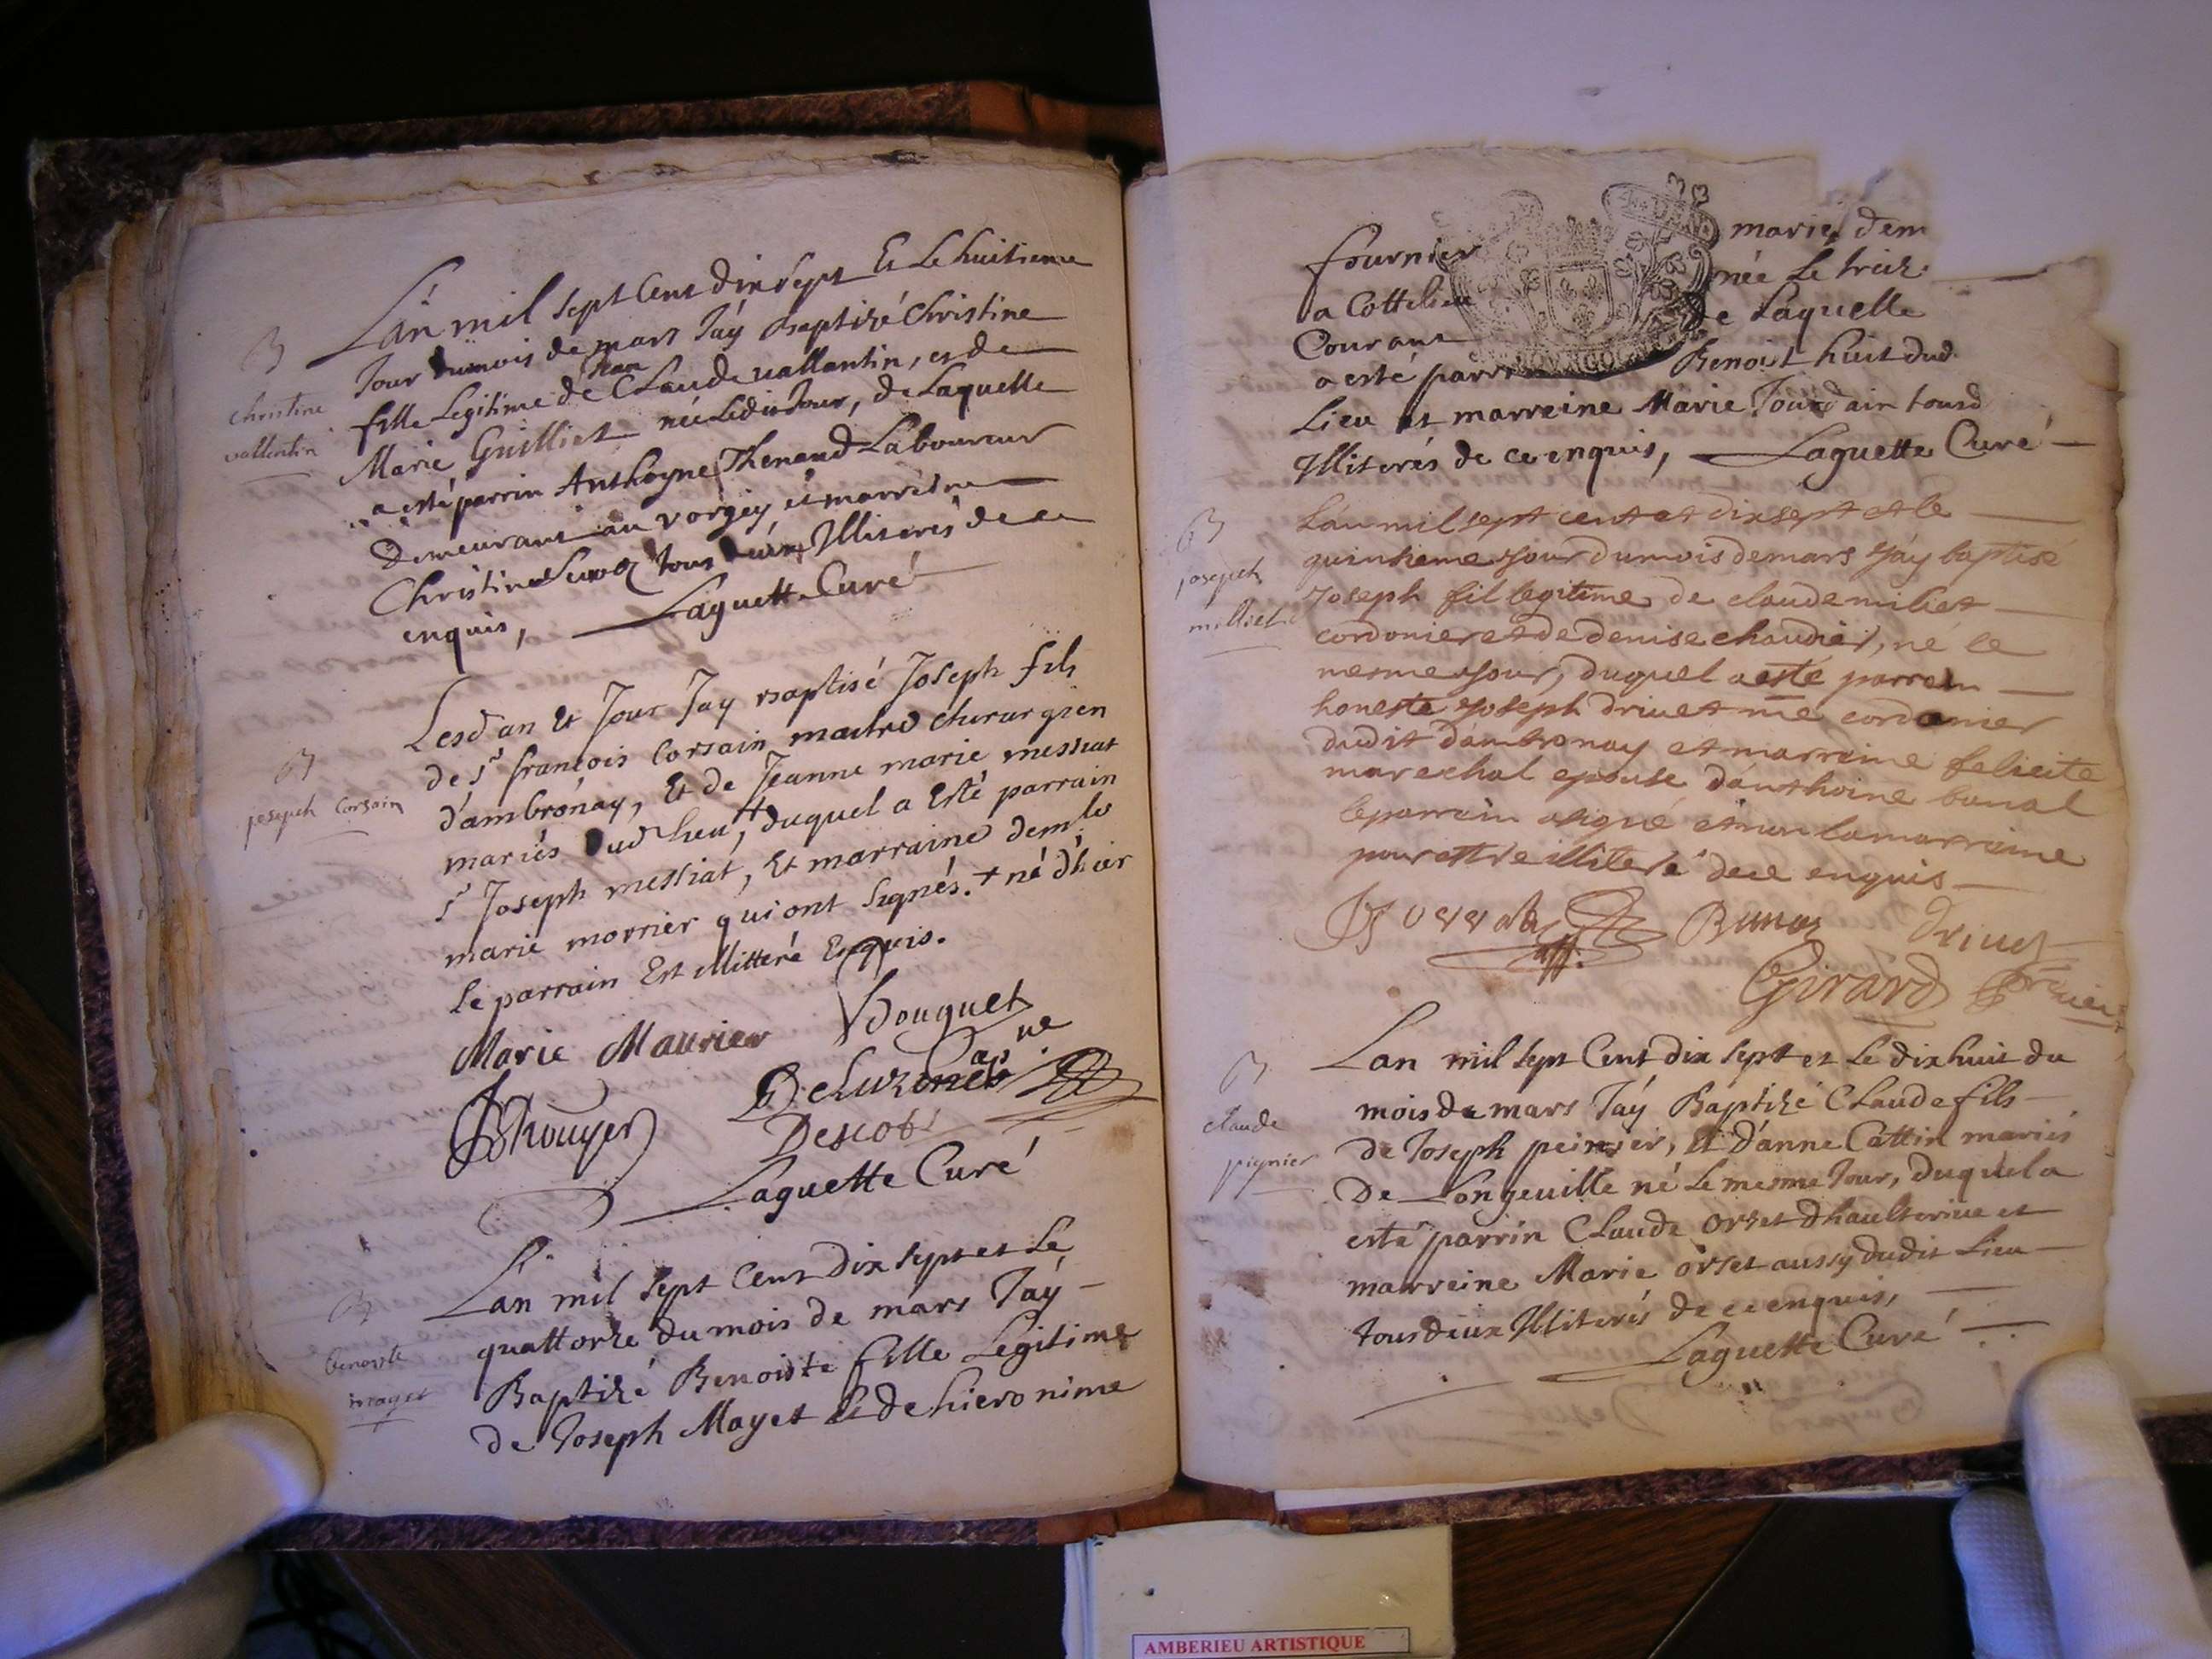 Lán mil sept Cent dix sept Et Le huitieme
Jour du mois de mars Jáy Baptizé Christine
Jean
fille Legitime de Claude vallantin, et de
Marie Guilliet née Ledit Jour, de Laquelle
a esté parrin Anthoyne Thenand Laboureur
Demeurant au vorgey et marreine
Christine tous deux Illiterés de ce
enquis, Laguette Curé
B
christine
vallentin
Lesd an Et Jour Jay baptisé Joseph fils
de Sr françois Corsain maitre chirurgien
d'ambrónay, Et de Jeanne marie messiat
mariés dud lieu, + duquel a Esté parrain
Sr Joseph messiat, Et marraine demle
marie morrier qui ont Signés. + né d'hier
Le parrain Est illitteré Enquis.
B
joseph Corsain
Marie Maurier Douguet
Descos
Laguette Curé
Lán mil sept Cent Dix sept et Le
quattorze du mois de márs Jáy
Baptizé Benoiste fille Legitime
de Joseph Mayet Et de hieronime
B
benoiste
mayet
fournier mariés dem
a Cottelieu née Le treiz
Courant de Laquelle
a esté parrin Benoist huit dud
Lieu et marreine Marie Jourdain tousd
Illiterés de ce enquis, Laguette Curé
Lán mil sept cent et dix sept et le
quinsieme jour du mois de mars j'áy baptisé
Joseph fil legitime de claude miliet
cordonier et de denise chaudier, né le
mesme jour, duquel a esté parrein
honeste joseph driuet me cordonier
dudit d'ambronay et marreine felicite
marechal epouse d'anthoine bonal
le parrain a signé et non la marraine
pour estre illiteré de ce enquis
B
joseph
milliet
Driuet
Girard
Lan mil sept Cent dix sept et Le dix huit du
mois de mars Jáy Báptizé Claude fils
de Joseph peinier, Et d'ánne Cattin mariés
De Longeuille né Le mesme Jour, Duquel a
esté parrin Claude orset dhaulteriue et
marreine Marie orset aussy dudit Lieu
tous deux Illiterés de ce enquis,
Laguette Curé
B
claude
pignier
AMBERIEU ARTISTIQUE